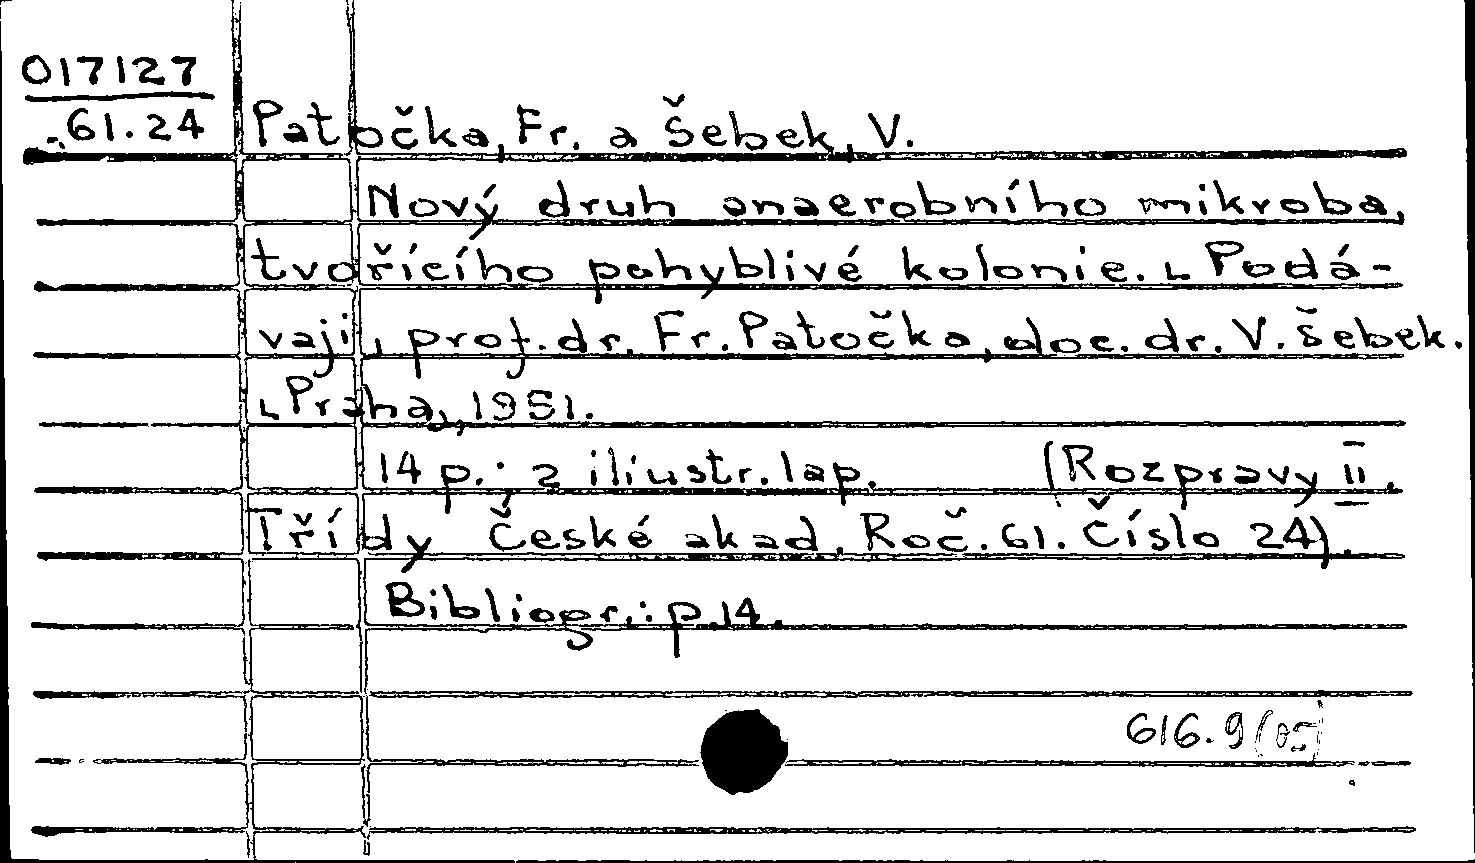 017127
61.24 Patočka, Fr. a Šebek, V.
Nový druh anaerobního mikroba,
tvořícího pohyblivé kolonie. Podá-
vají, prof. dr. Fr. Patočka, doc. dr. V. Šebek.
Praha, 1951.
14 p.; 2 iliustr. lap. (Rozpravy II.
Třídy České akad. Roč. 61. Číslo 24).
Bibliogr.: p. 14.
616.9(05)